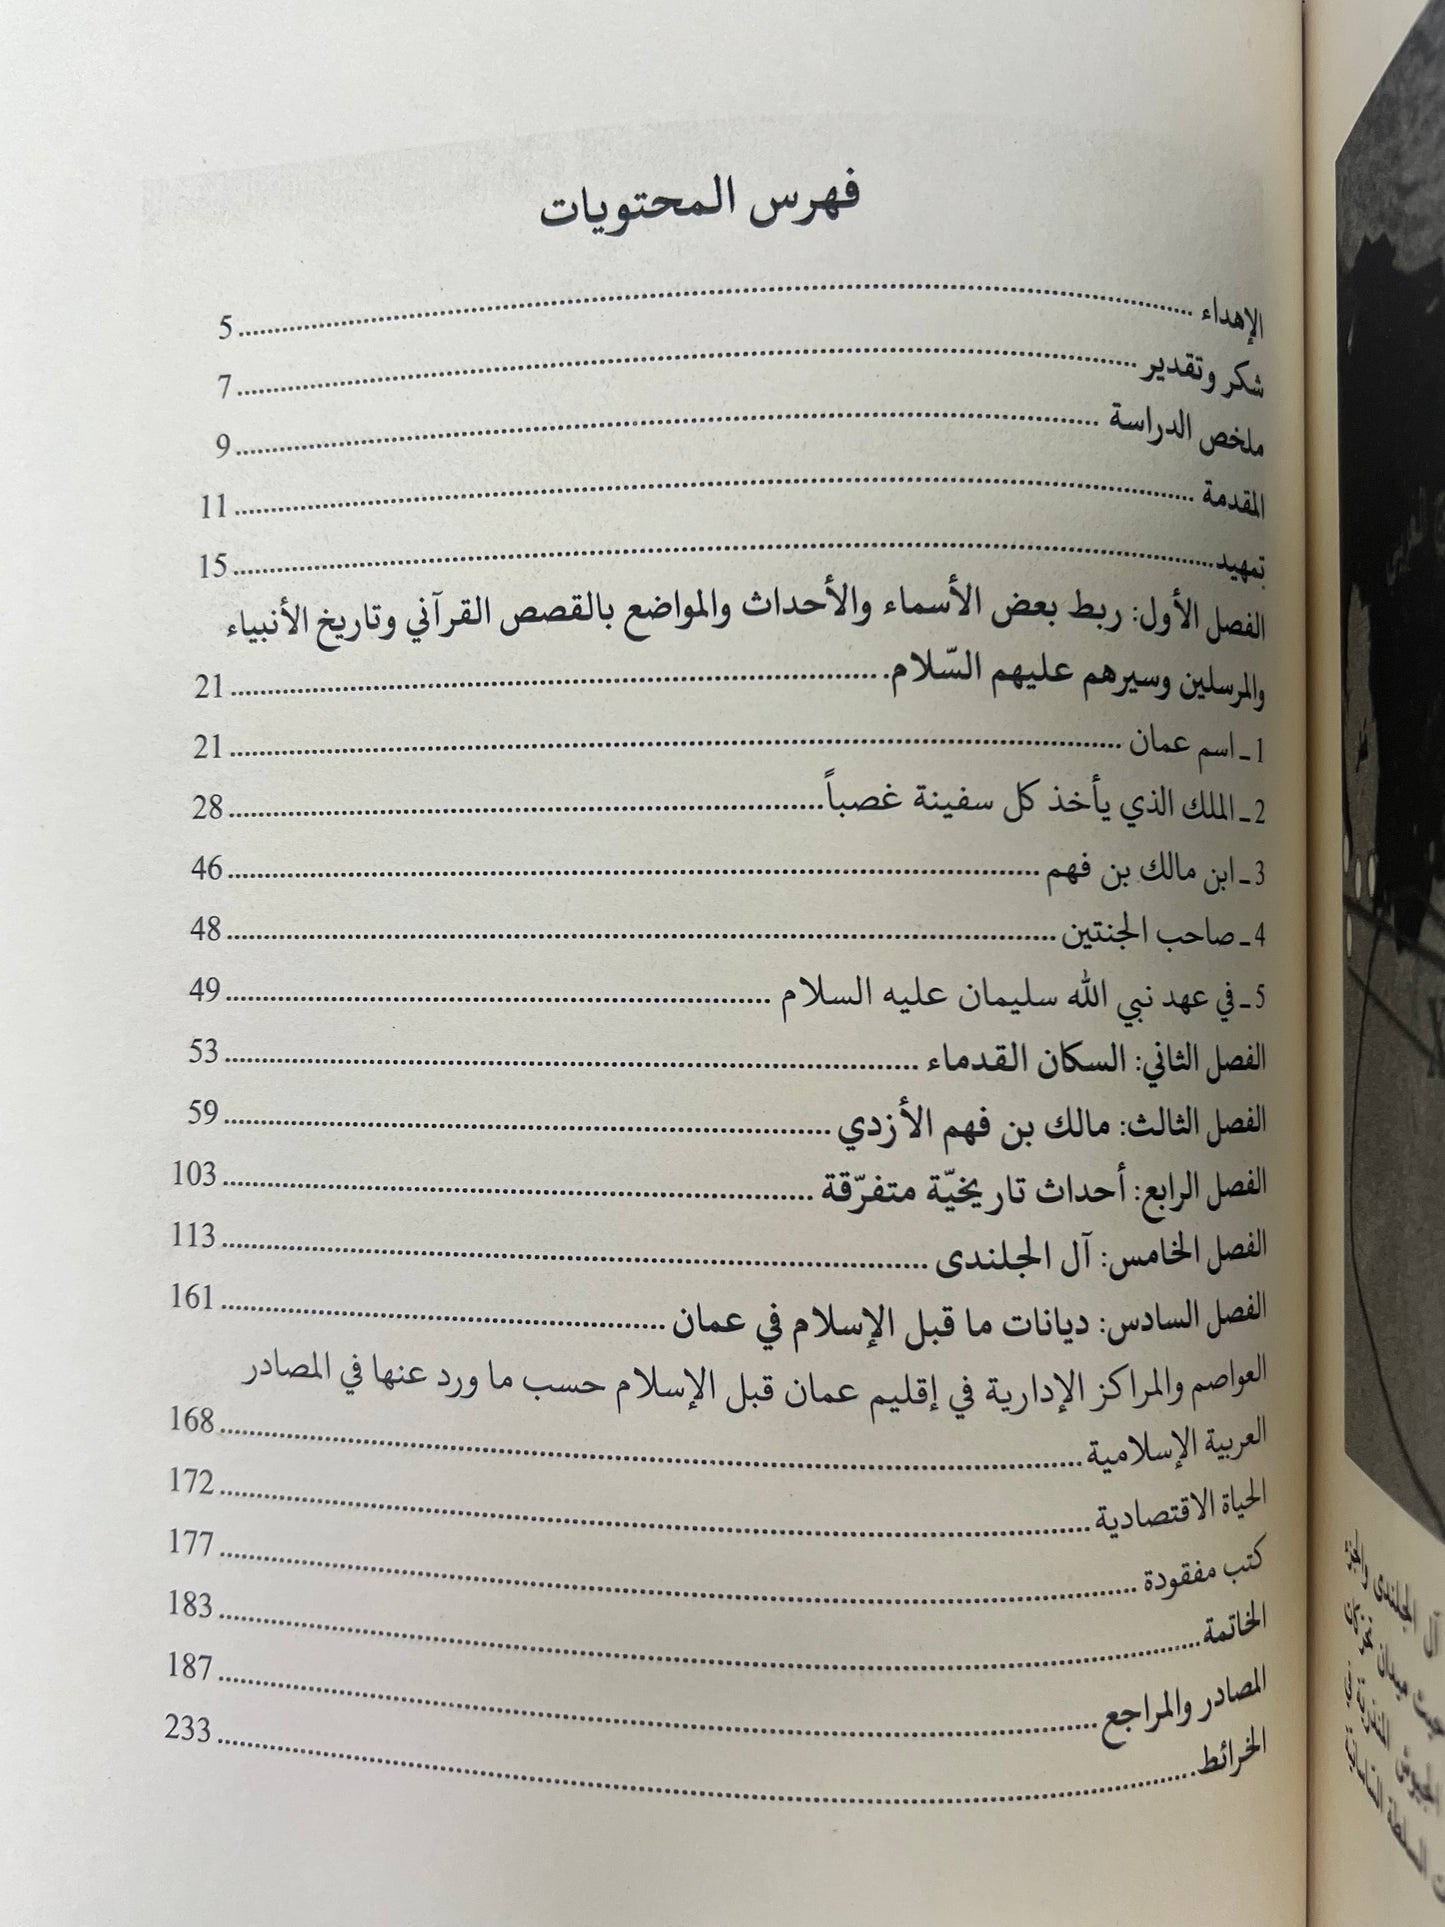 فهرس المحتويات
الإهداء 5
شكر وتقدير 7
ملخص الدراسة 9
المقدمة 11
تمهيد 15
الفصل الأول: ربط بعض الأسماء والأحداث والمواضع بالقصص القرآني وتاريخ الأنبياء
والمرسلين وسيرهم عليهم السّلام 21
1 ـ اسم عمان 21
2 ـ الملك الذي يأخذ كل سفينة غصباً 28
3 ـ ابن مالك بن فهم 46
4 ـ صاحب الجنتين 48
5 ـ في عهد نبي الله سليمان عليه السلام 49
الفصل الثاني: السكان القدماء 53
الفصل الثالث: مالك بن فهم الأزدي 59
الفصل الرابع: أحداث تاريخيّة متفرّقة 103
الفصل الخامس: آل الجلندى 113
الفصل السادس: ديانات ما قبل الإسلام في عمان 161
العواصم والمراكز الإدارية في إقليم عمان قبل الإسلام حسب ما ورد عنها في المصادر
العربية الإسلامية 168
الحياة الاقتصادية 172
كتب مفقودة 177
الخاتمة 183
المصادر والمراجع 187
الخرائط 233
آل الجلندى